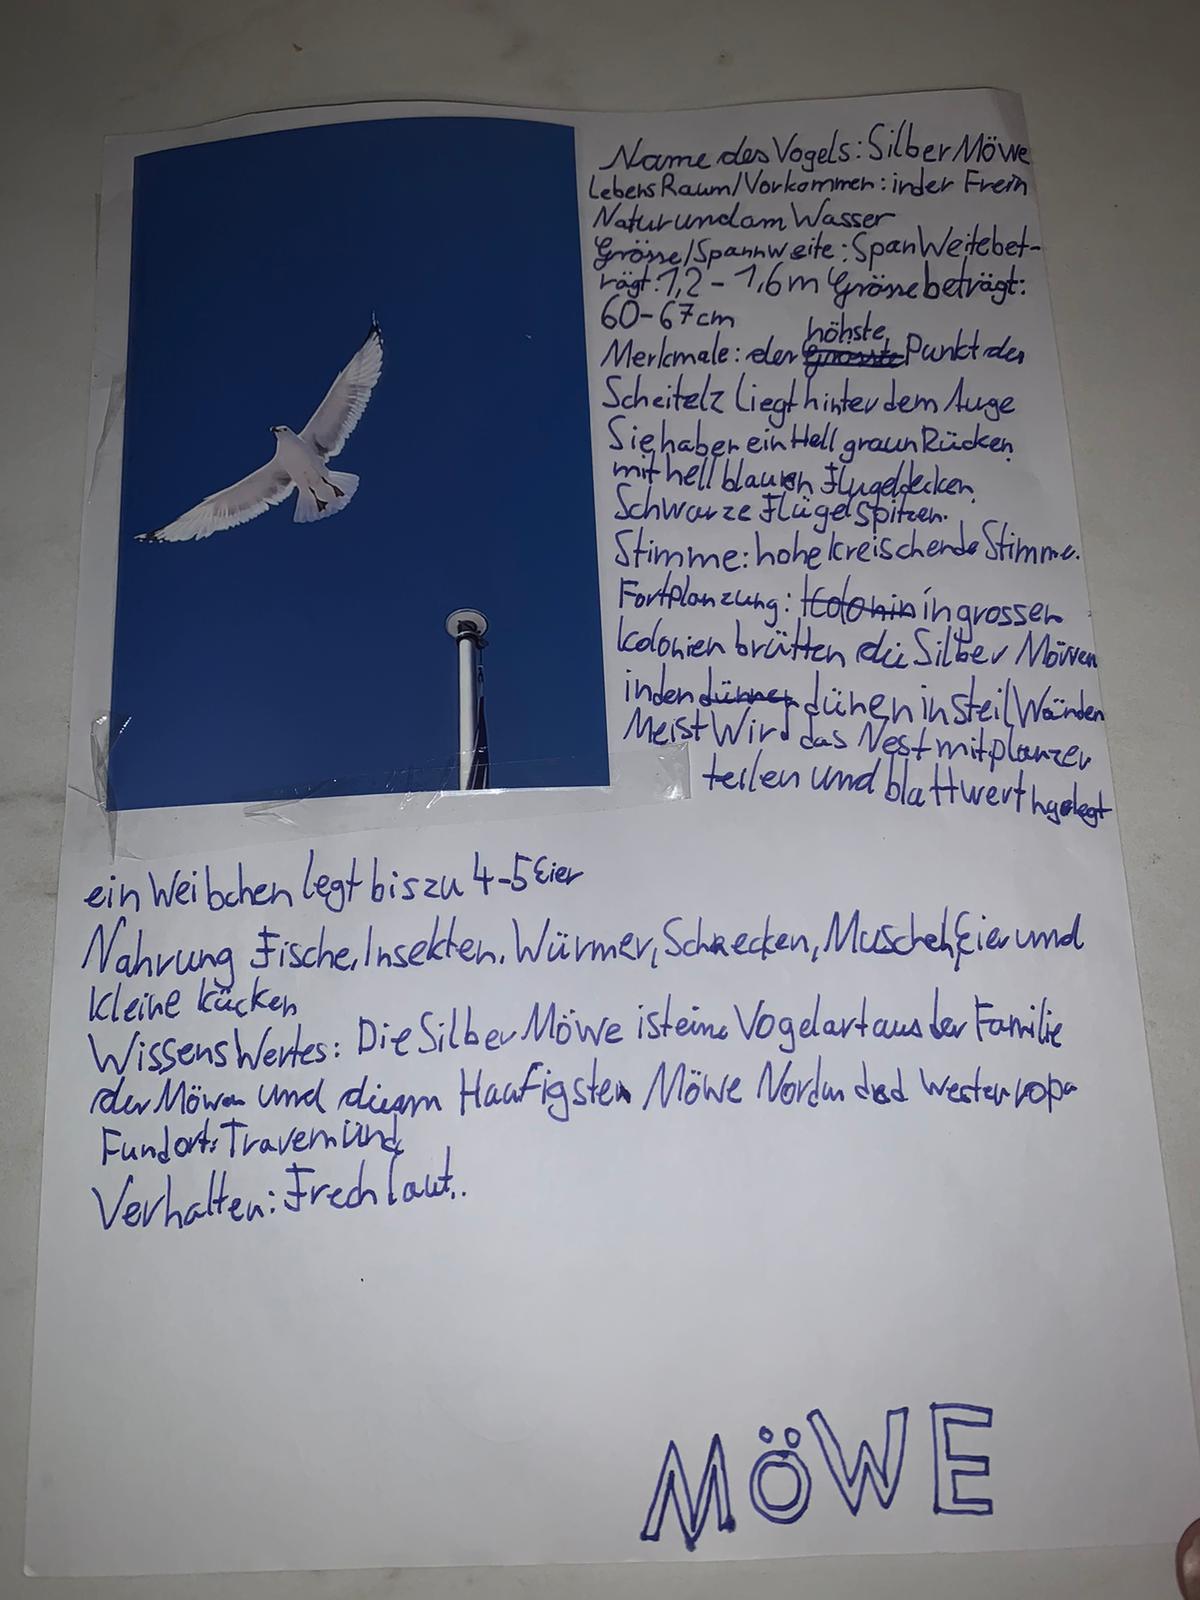 Name des Vogels: Silber Möwe
Lebens Raum/Vorkommen: in der Frein
Natur und am Wasser
Grösse/Spannweite: Span Weite bet-
rägt: 1,2 - 1,6 m Grösse beträgt:
60-67cm
höhste
Merkmale: der Grösste Punkt des
Scheitelz Liegt hinter dem Auge
Sie haben ein Hell graun Rücken
mit hell blauen Flugeldecken
Schwarze Flügel spitzen.
Stimme: hohe kreischende Stimme.
Fortplanzung: Kolonin in grossen
kolonien brütten die Silber Möwen
in den dünnen dünen in steil Wänden
Meist Wird das Nest mit planzen
teilen und blattwerk gelegt
ein Weibchen legt bis zu 4-5 Eier
Nahrung Fische, Insekten, Würmer, Schnecken, Muscheln, Eier und
kleine kücken
Wissens Wertes: Die Silber Möwe ist eine Vogelart aus der Familie
der Möwen und Haufigsten Möwe Westeuropa
Fundort: Travemünde
Verhalten: Frech laut..
MÖWE